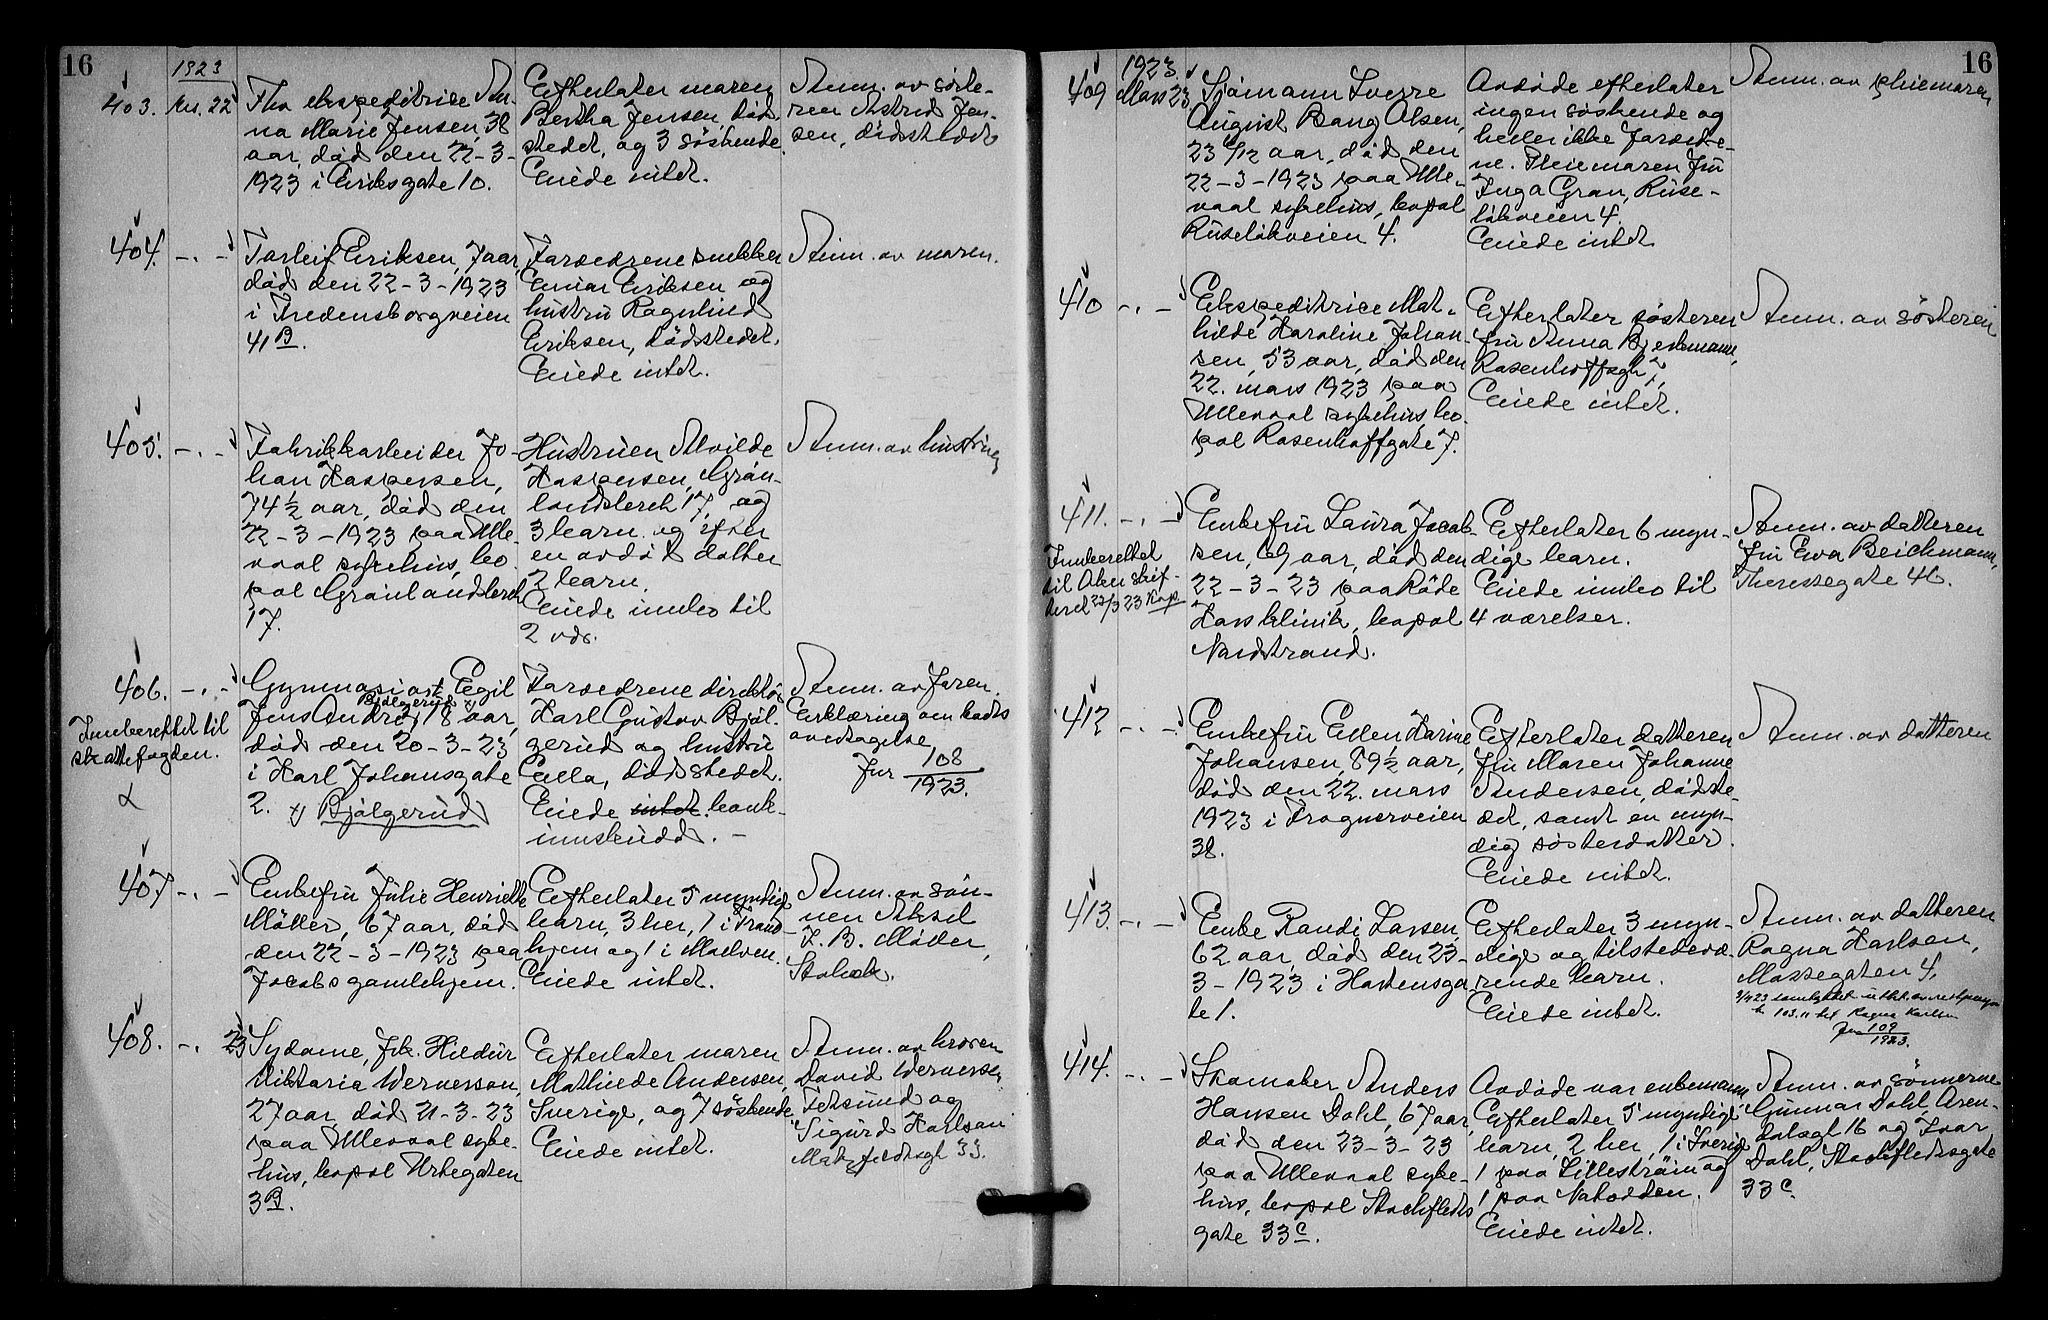 16
1923
403. Ms. 22
Fhv ekspeditrice An-
na Marie Jensen, 38
aar, död den 22-3-
1923 i Eriksgate 10.
Efterlater moren
Bertha Jensen, död-
stedet, og 3 söskende.
Eiede intet.
Anm. av söste-
ren Astrid Jen-
sen, dödsstedet
404. -.-
Torleif Eriksen, 7 aar,
död den 22-3-1923
i Fredensborgveien
41B.
Forældrene snekker
Einar Eriksen og
hustru Ragnhild
Eriksen, dödsstedet.
Eiede intet.
Anm. av moren.
405. -.-
Fabrikkarbeider Jo-
han Kaspersen,
74½ aar, död den
22-3-1923 paa Ulle-
vaal sykehus, bo-
pæl Grönlandsleret
17.
Hustruen Alvilde
Kaspersen, Grön-
landsleret 17, og
3 barn og efter
en avdöd datter
2 barn.
Eiede innbo til
2 vær.
Anm. av hustruen
406. -.-
Innberettet til
skattefogden.
Gymnasiast Egil
Jens Andreas Bjölgerud, 18 aar,
död den 20-3-23
i Karl Johansgate
2. x) Bjölgerud
Forældrene direktör
Karl Gustav Bjöl-
gerud og hustru
Ella, dödsstedet.
Eiede intet. bank-
innskudd. -
Anm. av faren.
Erklæring om bo
overtagelse
Jnr 108
1923.
407 -.-
Enkefru Julie Henriette
Möller, 67 aar, död
den 22-3-1923 paa
Jacobs gamlehjem.
Efterlater 5 myndige
barn, 3 her, 1 i Trond-
hjem og 1 i
Eiede intet.
Anm. av sön-
nen Aksel
F. B. Möller,
408. -. 23
Sydame, frk. Hildur
Viktoria Wernersson,
27 aar, död 21-3-23
paa Ullevaal syke-
hus, bopæl Urtegaten
3B.
Efterlater moren
Mathilde Andersen,
Sverige, og 7 söskende
Eiede intet.
Anm. av broren
David Wernersson
Fetsund og
Sigurd Karlsen
33.
16
1923.
409 Mars 23
Sjömann Sverre
August Bang Olsen,
23 5/12 aar, död den
22-3-1923 paa Ulle-
vaal sykehus, bopæl
Ruselökveien 4.
Avdöde efterlater
ingen söskende og
heller ikke forældre-
ne. Pleiemoren fru
Inga Gran, Ruse-
lökveien 4.
Eiede intet
Anm. av pleiemoren
410 -.-
Ekspeditrice Mat-
hilde Karoline Johan-
sen, 53 aar, död den
22. mars 1923 paa
Ullevaal sykehus, bo-
pæl Rosenhoffgate 7.
Efterlater sösteren
fru Anna Bjerkmann,
Rosenhoffsgt 7,
Eiede intet.
Anm. av sösteren
411. -.-
Innberettet
til Aker skif-
teret 27/3 23
Enkefru Laura Jacob-
sen, 69 aar, död den
22-3-23 paa Röde
Kors klinik, bopæl
Nordstrand.
Efterlater 6 myn-
dige barn.
Eiede innbo til
4 værelser.
Anm. av datteren
fru Ewa Beichmann,
Theressegate 46.
412 -.-
Enkefru Ellen Karine
Johansen, 89½ aar,
död den 22. mars
1923 i Frognerveien
38.
Efterlater datteren
fru Maren Johanne
Andersen, dödste-
det, samt en myn-
dig sösterdatter.
Eiede intet.
Anm. av datteren
413. -.-
Enke Randi Larsen,
62 aar, död den 23-
3-1923 i Holstensga-
te 1.
Efterlater 3 myn-
dige og tilstedevæ-
rende barn.
Eiede intet.
Anm. av datteren
Ragna Karlsen,
Mossegaten 4.
Ragna Karlsen
Jnr 109
1923.
414. -.-
Skomaker Anders
Hansen Dahl, 67 aar,
död den 23-3-23
paa Ullevaal syke-
hus, bopæl Stockfleths
gate 33c.
Avdöde var enkemann,
Efterlater 5 myndige
barn, 2 her, 1 i Sverige
1 paa Lilleström og
1 paa Notodden.
Eiede intet.
Anm. av sönnerne
Gunnar Dahl, Aren-
dalsgt 16 og Ivar
Dahl, Stockflethsgate
33c.